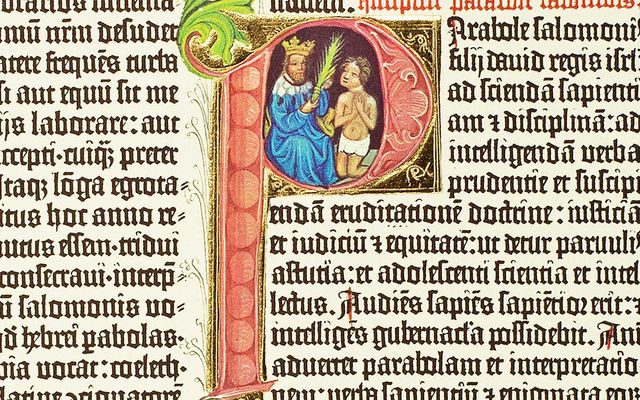 nr̄m desuder
frequēs turba
aut equū sit me
laborare: aut
cuiqȝ preter
lōga egrota-
hoc anno re-
essem. tridui
consecraui. interp̄
salomonis vo-
hebrei pabolas.
vocat: coeleth.
Parabole salomonis
filij dauid regis isrl
ad sciendā sapienti
am ⁊ disciplinā: ad
intelligendā verba
prudentie et suscipi
endā eruditationē doctrine: iusticiā
et iudiciū ⁊ equitatē: ut detur paruulis
astutia: et adolescenti scientia et intel
lectus. Audiēs sapiēs sapiētior erit: ⁊
intelligēs gubernacła possidebit. An
aduertet parabolam et interpretatio
verba sapientiū ⁊ enigmata